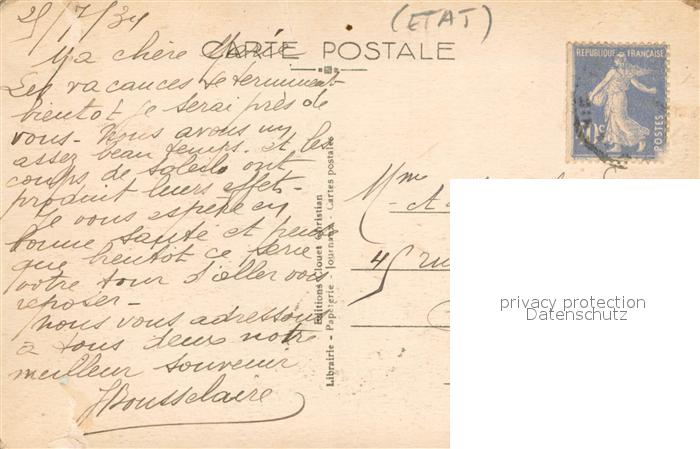 25/7/34
(ETAT)
CARTE POSTALE
REPUBLIQUE FRANÇAISE
POSTES
Ma chère
Les vacances se terminent
bientot je serai près de
vous - Nous avons un
assez beau temps. et les
coups de soleils ont
produit leurs effets -
Je vous espère en
bonne santé et pense
que bientot ce sera
votre tour d'aller vous
reposer -
Nous vous adressons
à tous deux notre
meilleur souvenir
Editions Clouet Christian
Librairie - Papeterie - Journaux - Cartes postales
Mme
privacy protection
Datenschutz